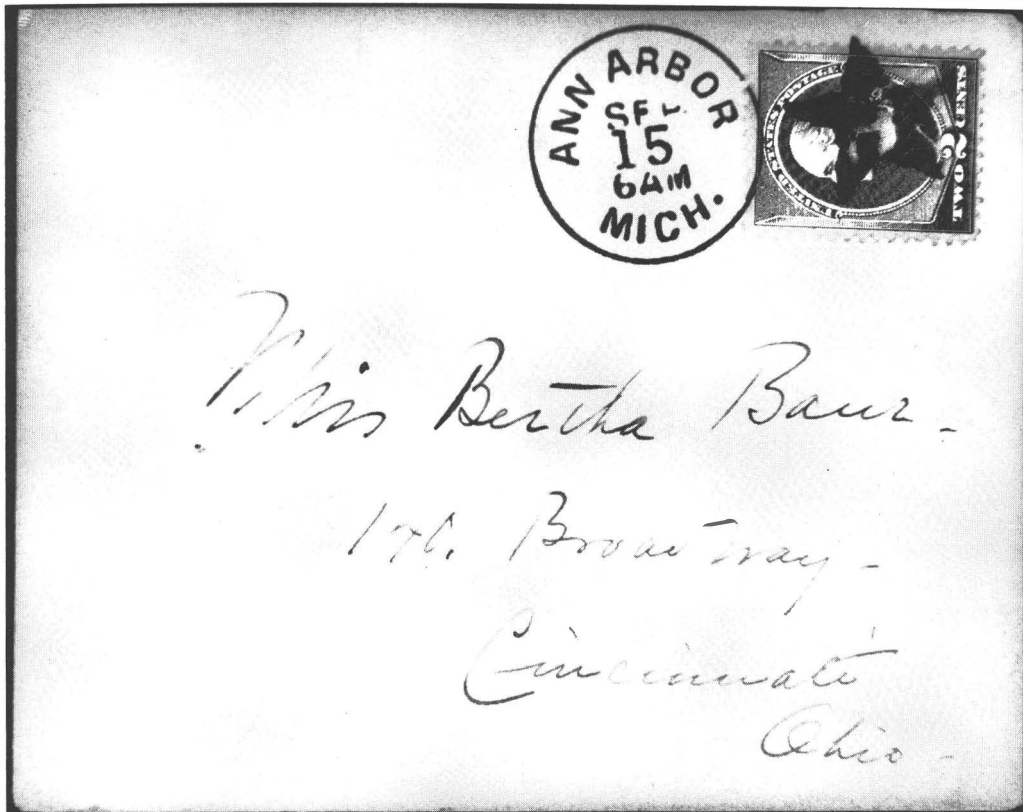 ANN ARBOR
SEP
15
6AM
MICH.
UNITED STATES POSTAGE
TWO 2 CENTS
Miss Bertha Baur.
Broadway
Cincinnati
Ohio